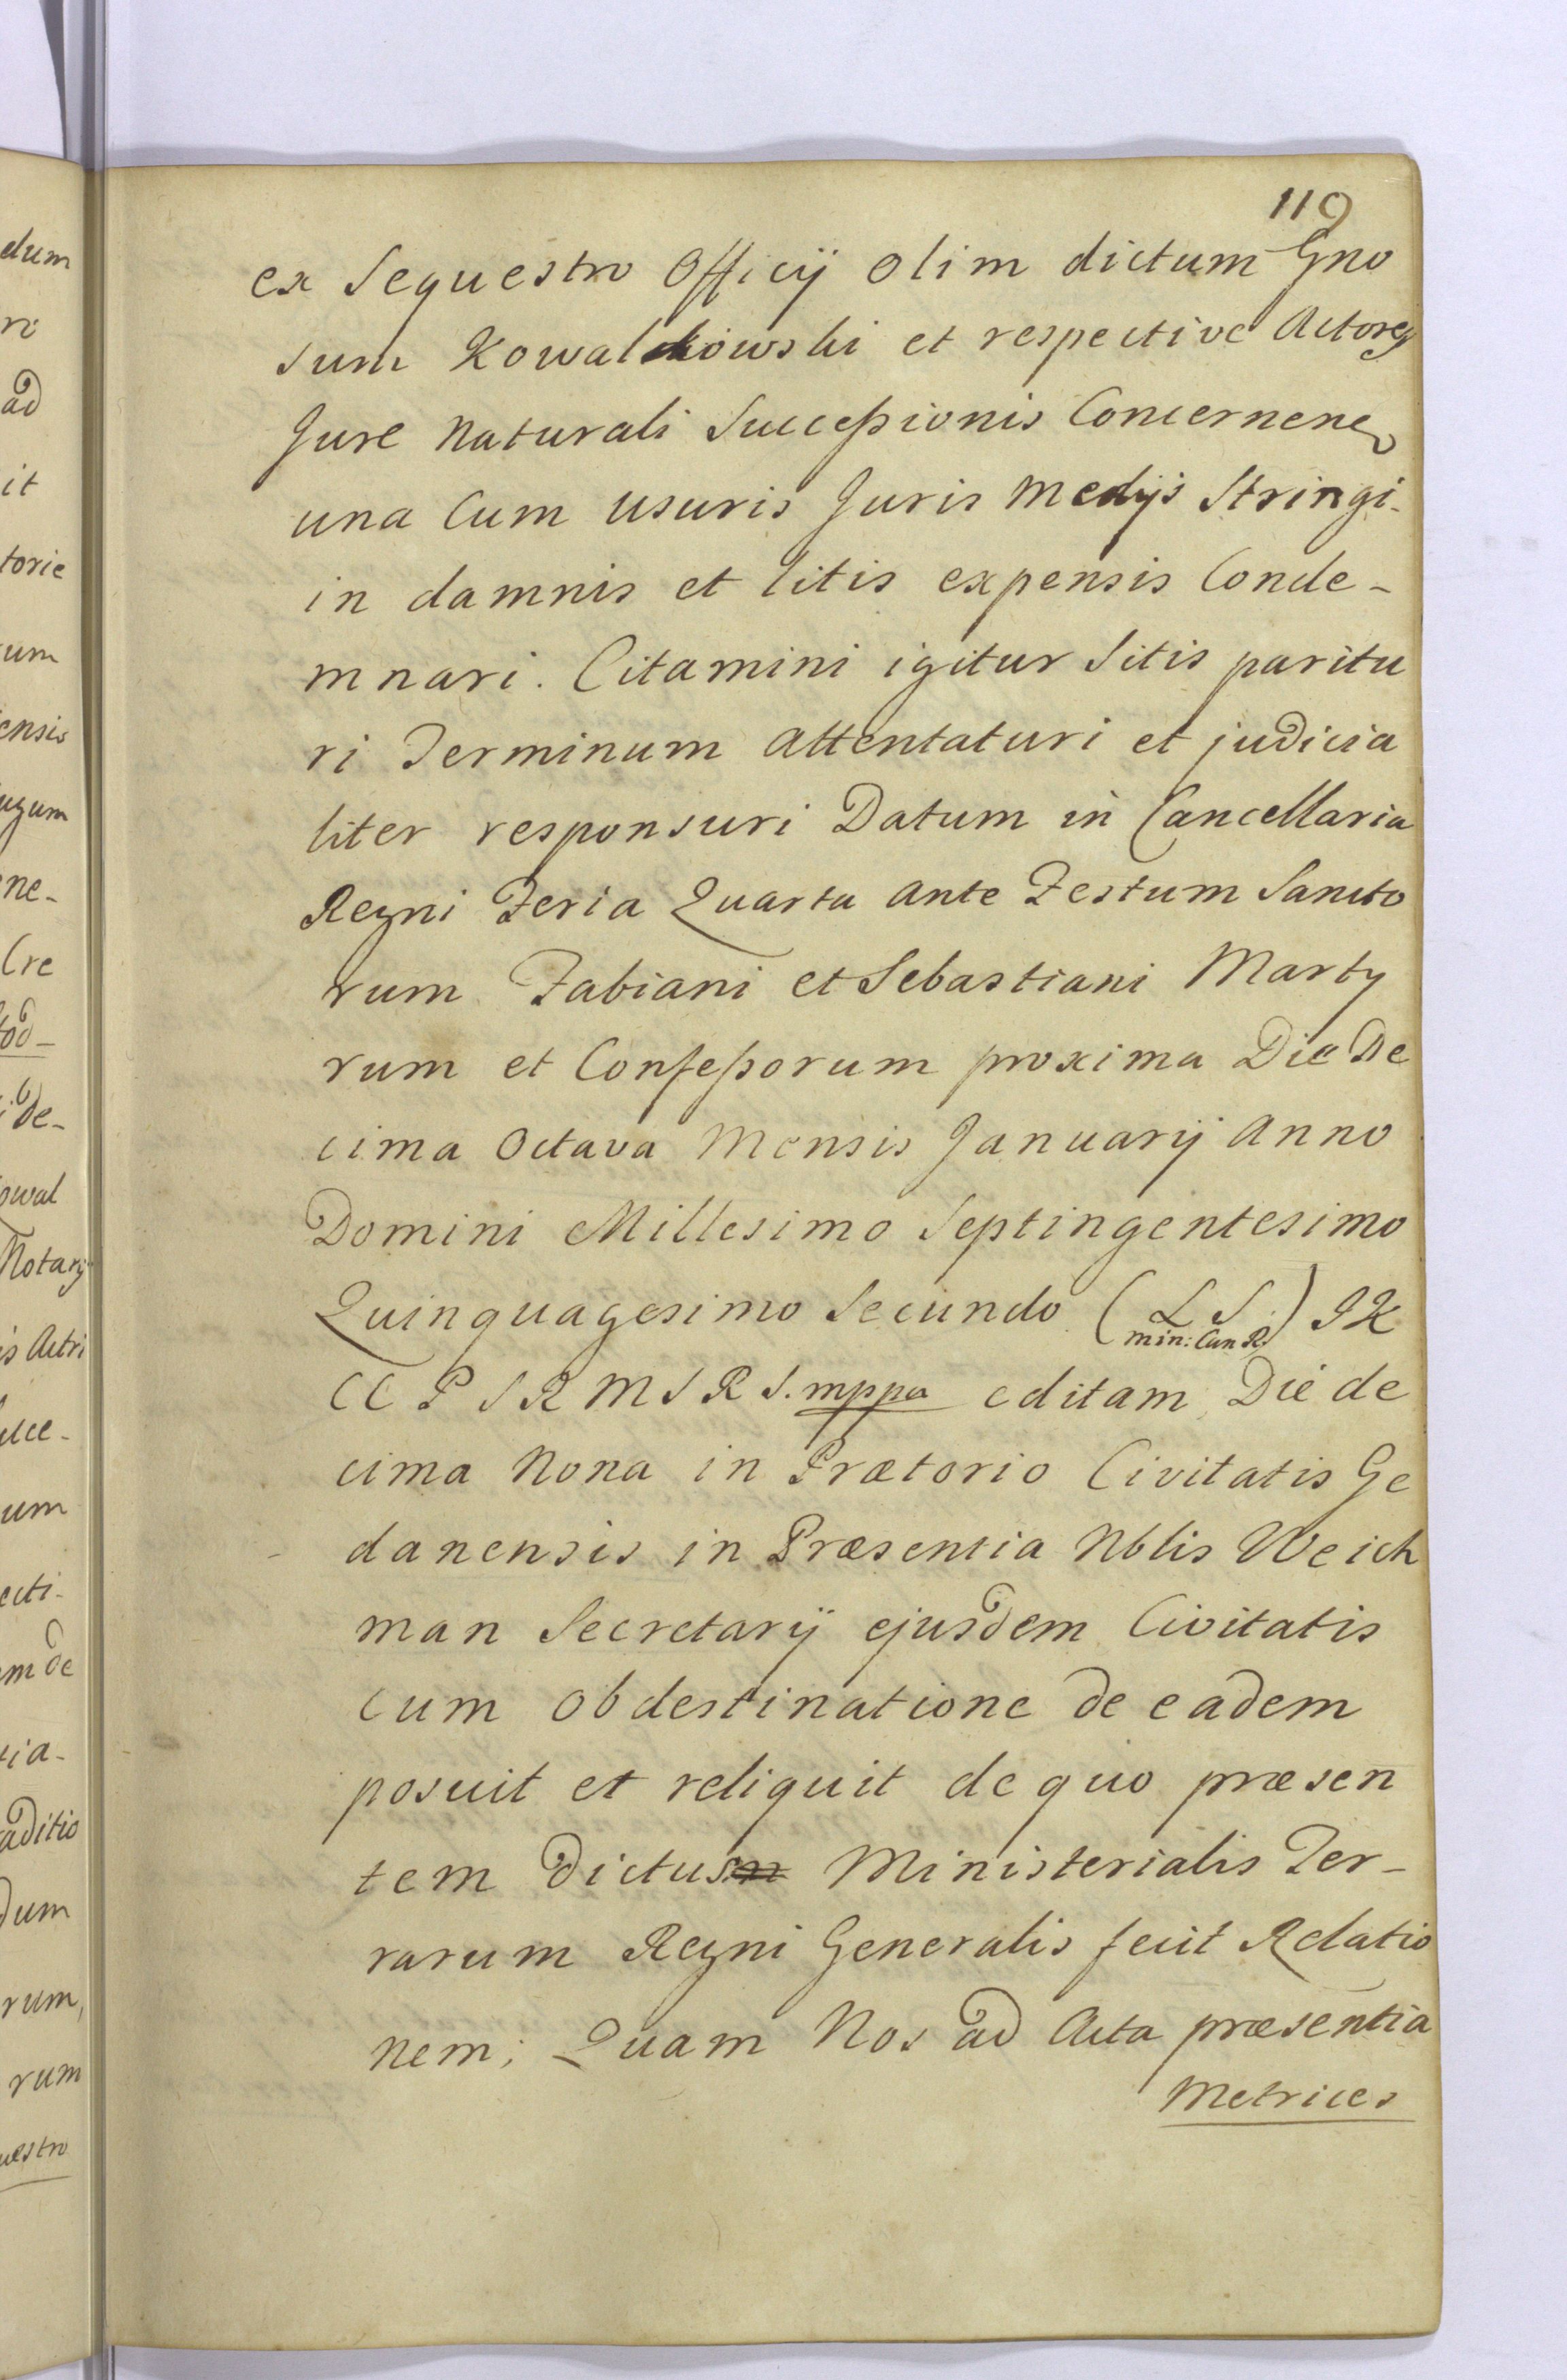 119
ex Sequestro Officij olim dictum Gno
sum Kowalkowski et respective Actores
Jure Naturali Successionis Concernenes
una Cum usuris Juris Medijs Stringi.
in damnis et litis expensis Conde-
mnari. Citamini igitur Sitis paritu
ri Terminum attentaturi et judicia
liter responsuri Datum in Cancellaria
Regni Feria Quarta ante Festum Sancto
rum Fabiani et Sebastiani Marty
rum et Confessorum proxima Die De
cima Octava Mensis Januarij Anno
Domini Millesimo Septingentesimo
Quinquagesimo Secundo (L S.) JK
min: Can R.
CC P S R M S R S. mppa editam Die de
cima Nona in Prætorio Civitatis Ge
danensis in Præsentia Nblis Weich
man Secretarij ejusdem Civitatis
cum obdestinatione de eadem
posuit et reliquit de quo præsen
tem Dictus Ministerialis Ter-
rarum Regni Generalis fecit Relatio
nem; Quam Nos ad Acta præsentia
Metrices
dum
ro
ad
it
torie
um
ensis
ne-
Cre
tod-
de-
owal
Notarij
is Actri
um
ecti-
m de
ia-
aditio
dum
rum,
rum
uestro